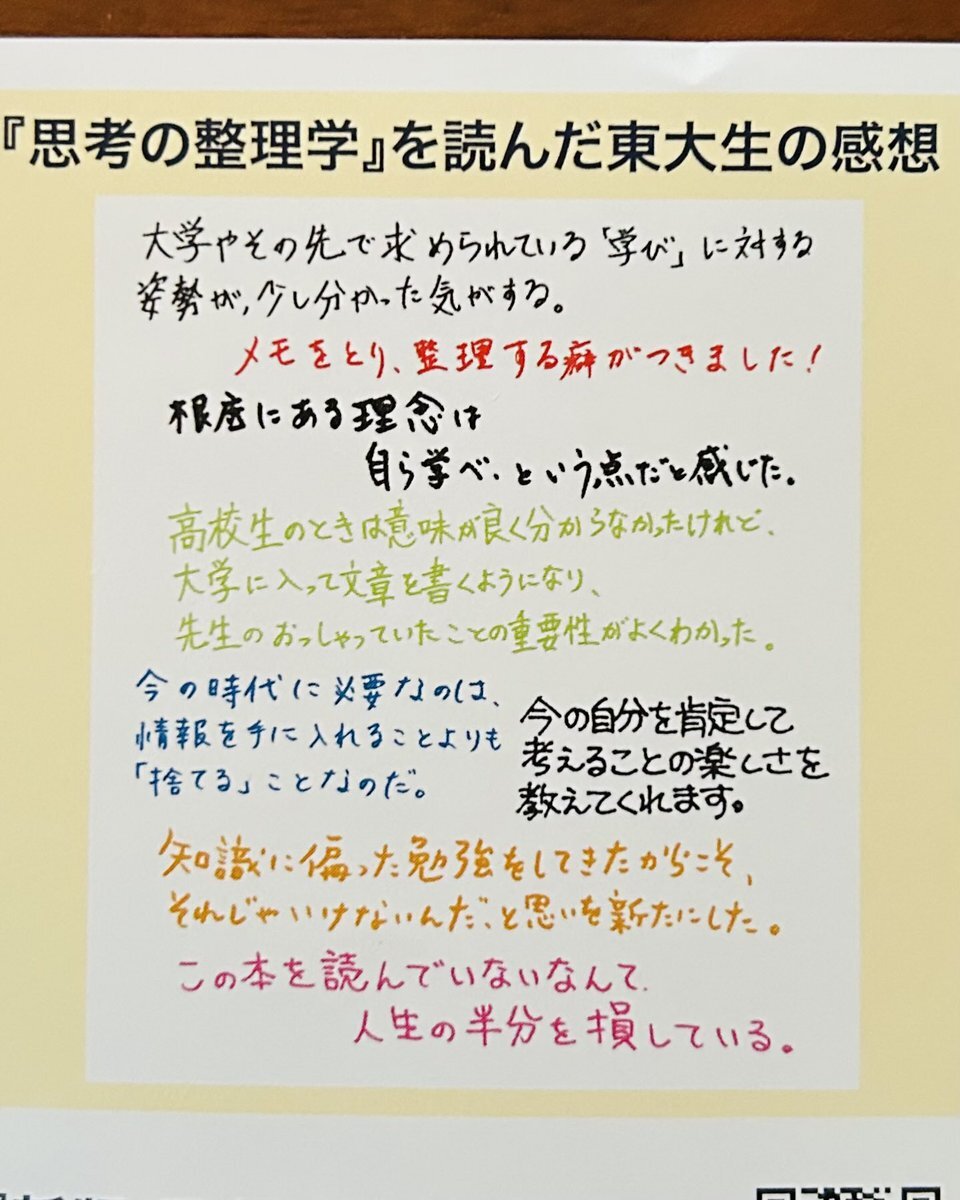 『思考の整理学』を読んだ東大生の感想
大学やその先で求められている「学び」に対する
姿勢が、少し分かった気がする。
メモをとり、整理する癖がつきました！
根底にある理念は
自ら学べ、という点だと感じた。
高校生のときは意味が良く分からなかったけれど、
大学に入って文章を書くようになり、
先生のおっしゃっていたことの重要性がよくわかった。
今の時代に必要なのは、
情報を手に入れることよりも
「捨てる」ことなのだ。
今の自分を肯定して
考えることの楽しさを
教えてくれます。
知識に偏った勉強をしてきたからこそ、
それじゃいけないんだ、と思いを新たにした。
この本を読んでいないなんて、
人生の半分を損している。